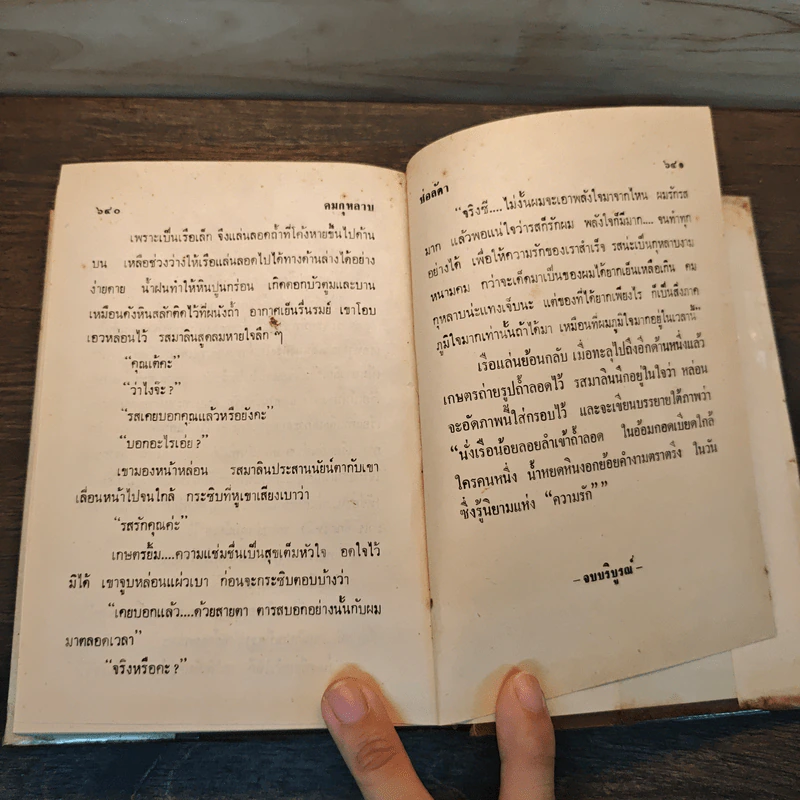 ๖๔๐
คมกุหลาบ
เพราะเป็นเรือเล็ก จึงแล่นลอดถ้ำที่โค้งหายขึ้นไปด้าน
บน เหลือช่วงว่างให้เรือแล่นลอดไปใต้ทางด้านล่างได้อย่าง
ง่ายดาย น้ำฝนทำให้หินปูนกร่อน เกิดดอกบัวตูมและบาน
เหมือนดังหินสลักติดไว้ที่ผนังถ้ำ อากาศเย็นรื่นรมย์ เขาโอบ
เอวหล่อนไว้ รสมาลินสูดลมหายใจลึก ๆ
“คุณเต้คะ”
“ว่าไงจ๊ะ?”
“รสเคยบอกคุณแล้วหรือยังคะ”
“บอกอะไรเอ่ย?”
เขามองหน้าหล่อน รสมาลินประสานนัยน์ตากับเขา
เลื่อนหน้าไปจนใกล้ กระซิบที่หูเขาเสียงเบาว่า
“รสรักคุณค่ะ”
เกษตรยิ้ม....ความแช่มชื่นเป็นสุขเต็มหัวใจ อดใจไว้
มิได้ เขาจูบหล่อนแผ่วเบา ก่อนจะกระซิบตอบบ้างว่า
“เคยบอกแล้ว....ด้วยสายตา ตารสบอกอย่างนั้นกับผม
มาตลอดเวลา”
“จริงหรือคะ?”
ช่อลัดา
๖๔๑
“จริงซี....ไม่งั้นผมจะเอาพลังใจมาจากไหน ผมรักรส
มาก แล้วพอแน่ใจว่ารสก็รักผม พลังใจก็มีมาก....จนทำทุก
อย่างได้ เพื่อให้ความรักของเราสำเร็จ รสน่ะเป็นกุหลาบงาม
หนามคม กว่าจะเด็ดมาเป็นของผมได้ยากเย็นเหลือเกิน คม
กุหลาบน่ะแทงเจ็บนะ แต่ของที่ได้ยากเพียงไร ก็เป็นสิ่งภาค
ภูมิใจมากเท่านั้นถ้าได้มา เหมือนที่ผมภูมิใจมากอยู่ในเวลานี้”
เรือแล่นย้อนกลับ เมื่อทะลุไปถึงอีกด้านหนึ่งแล้ว
เกษตรถ่ายรูปถ้ำลอดไว้ รสมาลินนึกอยู่ในใจว่า หล่อน
จะอัดภาพนี้ใส่กรอบไว้ และจะเขียนบรรยายใต้ภาพว่า
“นั่งเรือน้อยลอยลำเข้าถ้ำลอด ในอ้อมกอดเบียดใกล้
ใครคนหนึ่ง น้ำหยดหินงอกย้อยคำงามตราตรึง ในวัน
ซึ่งรู้นิยามแห่ง “ความรัก””
– จบบริบูรณ์ –